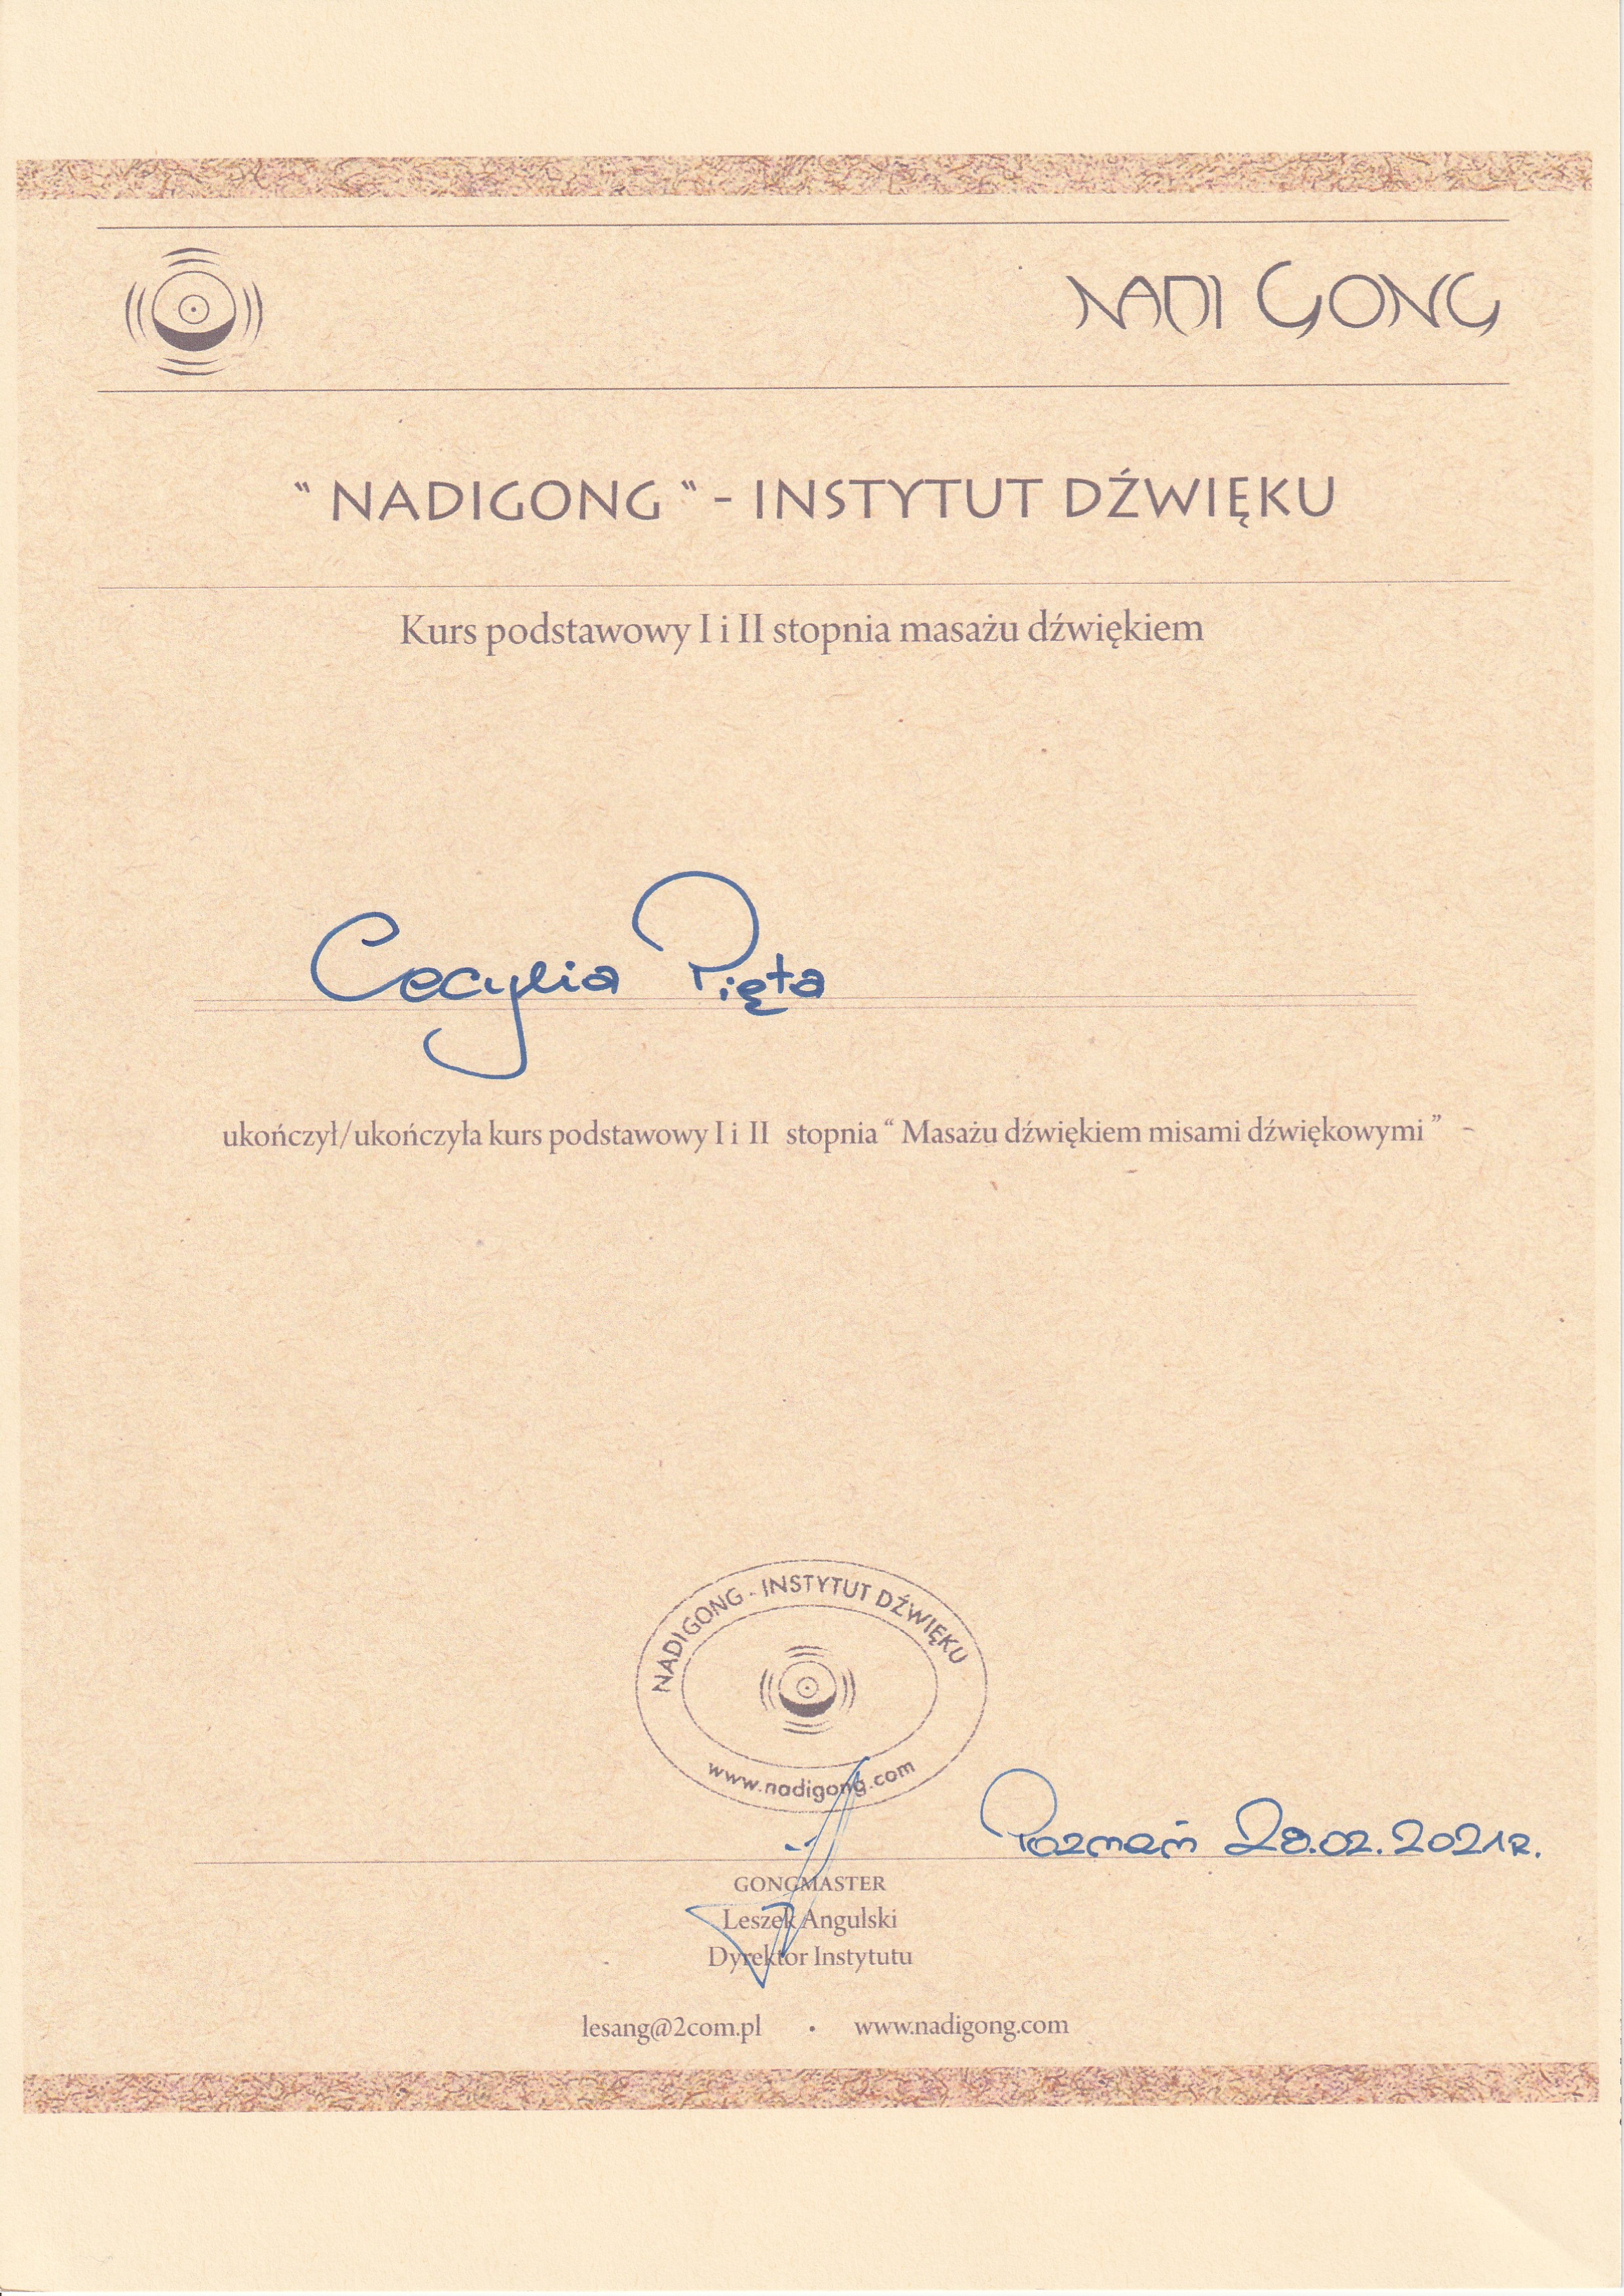 NADI GONG
“ NADIGONG “ - INSTYTUT DŹWIĘKU
Kurs podstawowy I i II stopnia masażu dźwiękiem
Cecylia Pięta
ukończył/ukończyła kurs podstawowy I i II stopnia “ Masażu dźwiękiem misami dźwiękowymi ”
NADIGONG - INSTYTUT DŹWIĘKU
www.nadigong.com
Poznań 28.02.2021R.
GONGMASTER
Leszek Angulski
Dyrektor Instytutu
lesang@2com.pl • www.nadigong.com